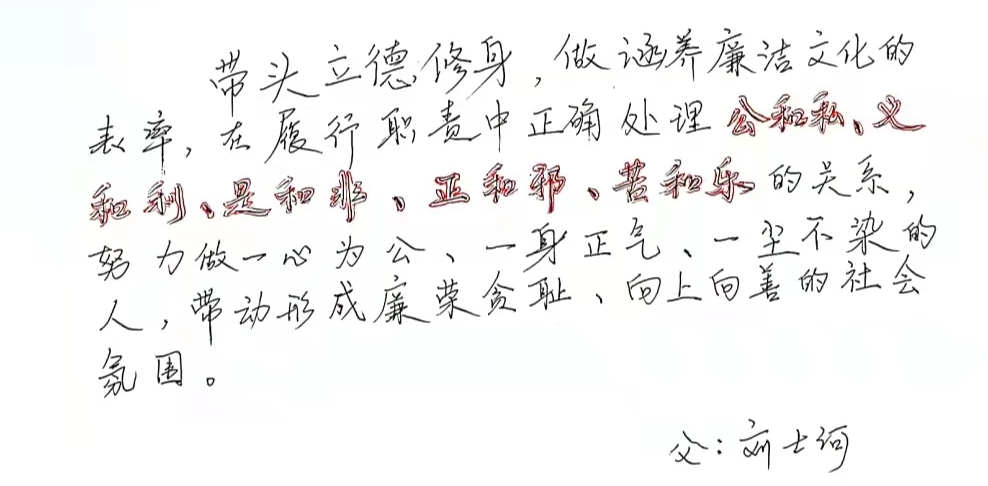 带头立德修身，做涵养廉洁文化的
表率，在履行职责中正确处理公和私、义
和利、是和非、正和邪、苦和乐的关系，
努力做一心为公、一身正气、一尘不染的
人，带动形成廉荣贪耻、向上向善的社会
氛围。
父：刘士河